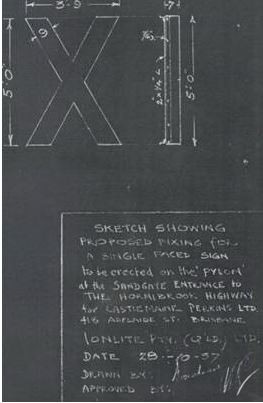 3'-9
7"
9"
5'-0"
5'-0"
XI
SKETCH SHOWING
PROPOSED FIXING for
A SINGLE FACED SIGN
to be erected on the 'PYLON'
at the SANDGATE ENTRANCE to
THE HORNIBROOK HIGHWAY
for CASTLEMAINE PERKINS LTD.
416 ADELAIDE ST. BRISBANE
IONLITE PTY. (QLD.) LTD.
DATE 28-10-37
DRAWN BY:
APPROVED BY: